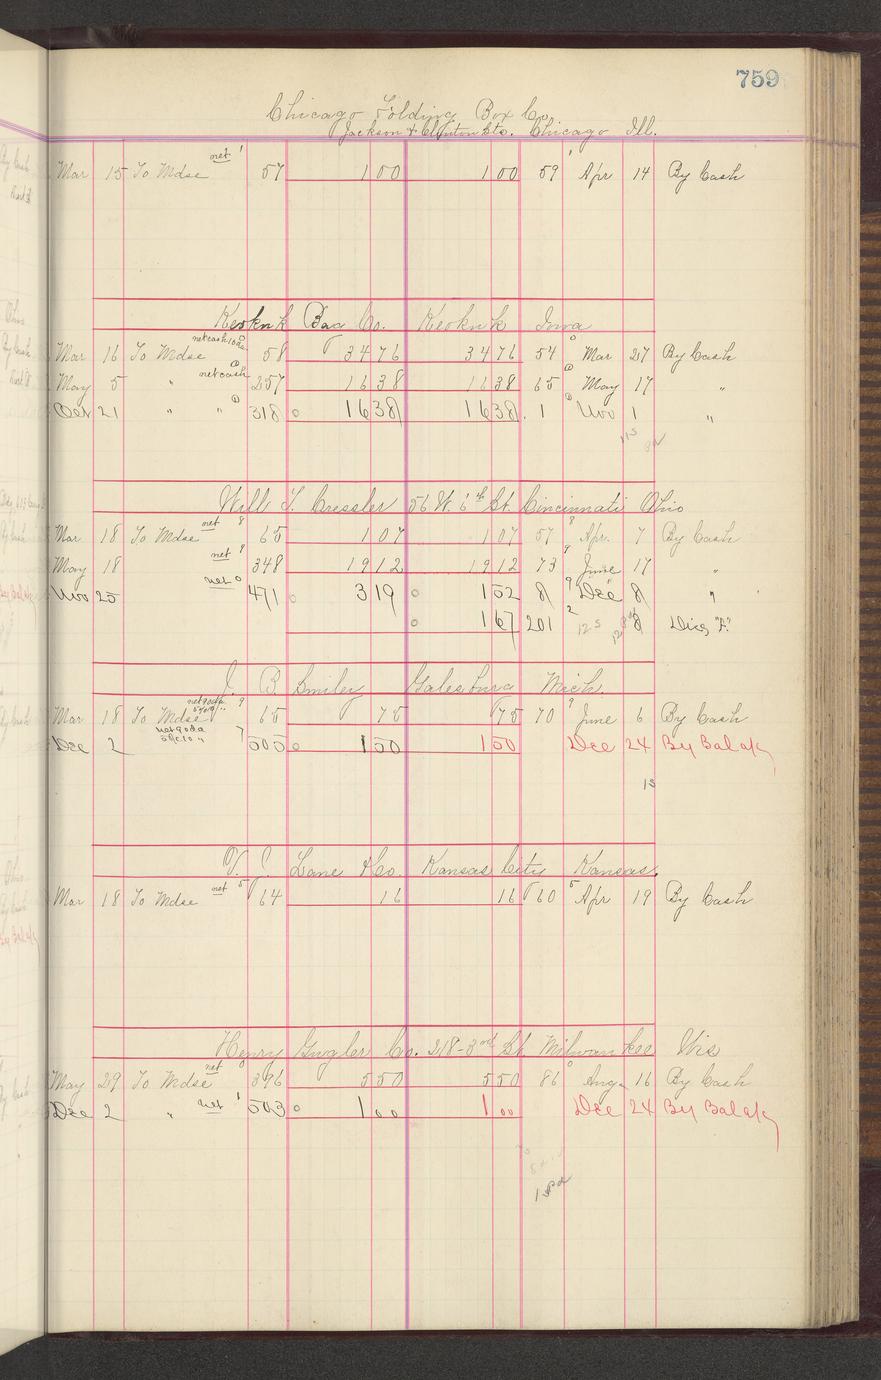 759
Chicago Folding Box Co.
Jackson & Clinton Sts. Chicago Ill.
Mar 15 To Mdse net 1 57 1 00 1 00 59 1 Apr 14 By Cash
Keokuk Box Co. Keokuk Iowa
Mar 16 To Mdse net cash 0 58 34 76 34 76 54 0 Mar 27 By Cash
May 5 " net cash 0 257 16 38 16 38 65 0 May 17 "
Oct 21 " " 0 318 0 16 38 16 38 1 0 Nov 1 "
11 s
Will T. Cressler 56 W. 6th St. Cincinnati Ohio
Mar 18 To Mdse net 8 65 1 07 1 07 57 8 Apr. 7 By Cash
May 18 net 9 348 19 12 19 12 73 9 June 17 "
Nov 25 net 0 471 0 3 19 0 1 52 8 9 Dec 8 "
0 1 67 201 2 " 8 Disc "F."
12 s
J B Smiley Galesburg Mich.
Mar 18 To Mdse net 90 da 5% 10 " 9 65 75 75 70 9 June 6 By Cash
Dec 2 net 90 da 5% 10 " 7 505 0 1 50 1 50 Dec 24 By Bal a/c
1 s
O. J. Lane & Co. Kansas City Kansas.
Mar 18 To Mdse net 5 64 16 16 60 5 Apr 19 By Cash
Henry Gugler Co. 218-3rd St. Milwaukee Wis
May 29 To Mdse net 0 396 5 50 5 50 86 0 Aug 16 By Cash
Dec 2 " net 1 503 0 1 00 1 00 Dec 24 By Bal a/c